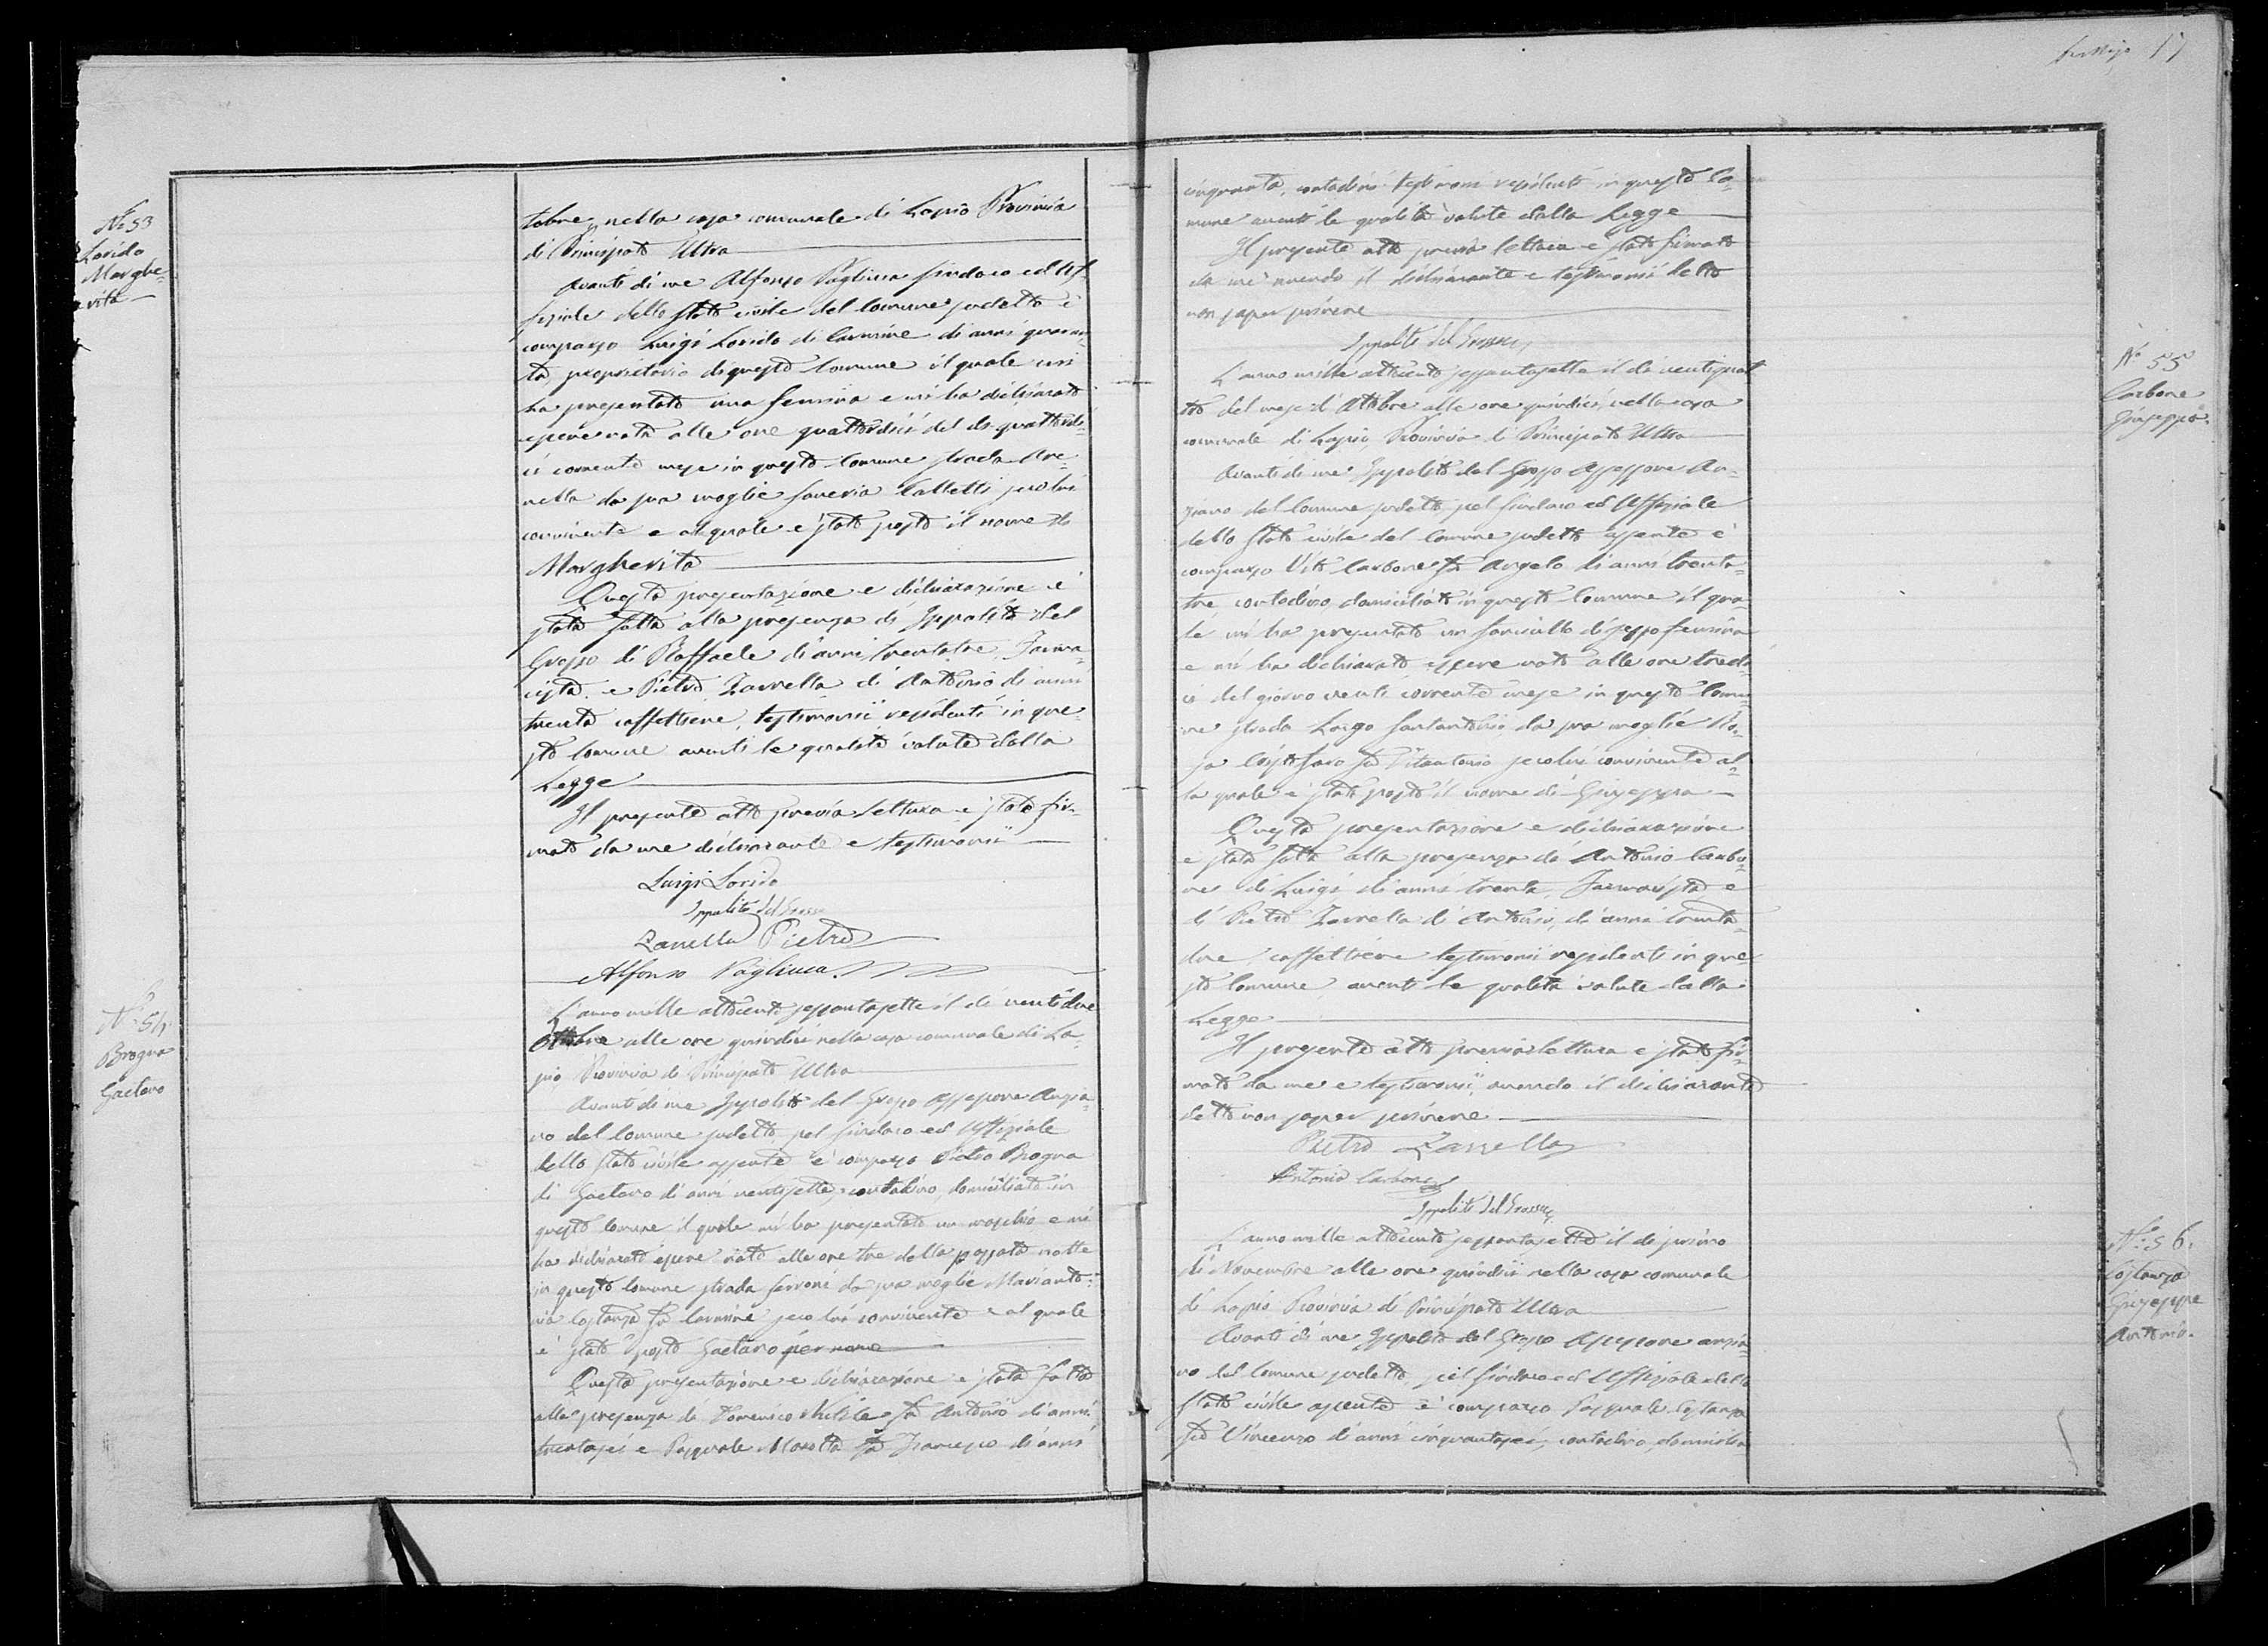 N.° 53
Lorido
Marghe-
rita
tobre, nella casa comunale di Lapio Provincia
di Principato Ultra
Avanti di me Alfonso Vagliuca Sindaco ed Uf-
fiziale dello Stato civile del Comune sudetto è
comparso Luigi Lorido di Carmine di anni quaran-
ta, proprietario di questo Comune il quale mi
ha presentato una femina e mi ha dichiarato
essere nata alle ore quattordici del dì quattordi-
ci corrente mese in questo Comune strada Are-
nella da sua moglie Saveria Calletti seco lui
convivente e al quale è stato posto il nome di
Margherita
Questa presentazione e dichiarazione è
stata fatta alla presenza di Ippolito del
Grosso di Raffaele di anni trentatre, Farma-
cista e Pietro Zarrella di Antonio di anni
trenta caffettiere, testimonii residenti in que-
sto Comune aventi le qualità volute dalla
Legge
Il presente atto previa lettura è stato fir-
mato da me dichiarante e testimonii
Luigi Lorido
Ippolito del Grosso
Zarrella Pietro
Alfonso Vagliuca
N.° 54
Brogna
Gaetano
L'anno mille ottocento sessantasette il dì ventidue
Ottobre alle ore quindici nella casa comunale di La-
pio Provincia di Principato Ultra
Avanti di me Ippolito del Grosso Assessore Anzia-
no del Comune sudetto, pel Sindaco ed Uffiziale
dello Stato civile assente è comparso Pietro Brogna
di Gaetano di anni ventisette, contadino, domiciliato in
questo Comune il quale mi ha presentato un maschio e mi
ha dichiarato essere nato alle ore tre della passata notte
in questo Comune strada Ferroni da sua moglie Mariānto-
nia Costanza fu Carmine seco lui convivente e al quale
è stato posto Gaetano per nome
Questa presentazione e dichiarazione è stata fatta
alla presenza di Domenico fu Antonio di anni
trentasei e Pasquale Marotta fu Francesco di anni
17
cinquanta, contadini testimoni residenti in questo Co-
mune aventi le qualità volute dalla Legge
Il presente atto previa lettura è stato firmato
da me avendo il dichiarante e testimonii detto
non saper scrivere
Ippolito del Grosso
N.° 55
Carbone
Giuseppa
L'anno mille ottocento sessantasette il dì ventiquat
tro del mese di Ottobre alle ore quindici, nella casa
comunale di Lapio, Provincia di Principato Ultra
Avanti di me Ippolito del Grosso Assessore An-
ziano del Comune sudetto, pel Sindaco ed Uffiziale
dello Stato civile del Comune sudetto assente è
comparso Vito Carbone fu Angelo di anni trenta-
tre, contadino, domiciliato in questo Comune il qua-
le mi ha presentato un fanciullo di sesso femina
e mi ha dichiarato essere nato alle ore tredi
ci del giorno venti corrente mese in questo Comu-
ne strada Largo Santantonio da sua moglie Ro-
sa Cristofaro fu Vitantonio seco lui convivente al-
la quale è stato posto il nome di Giuseppa
Questa presentazione e dichiarazione
è stata fatta alla presenza di Antonio Carbo-
ne di Luigi di anni trenta, Farmacista e
di Pietro Zarrella di Antonio, di anni trenta-
due, caffettiere testimoni residenti in que
sto Comune, aventi le qualità volute dalla
Legge
Il presente atto previa lettura è stato fir-
mato da me e testimonii, avendo il dichiarante
detto non saper scrivere
Pietro Zarrella
Antonio Carbone
Ippolito del Grosso
N.° 56.
Costanza
Giuseppe
Antonio
L'anno mille ottocento sessantasette il dì primo
di Novembre alle ore quindici nella casa comunale
di Lapio Provincia di Principato Ultra
Avanti di me Ippolito del Grosso Assessore anzia-
no del Comune sudetto, pel Sindaco ed Uffiziale dello
Stato civile assente è comparso Pasquale Costanza
fu Vincenzo di anni cinquantasei, contadino, domicilia